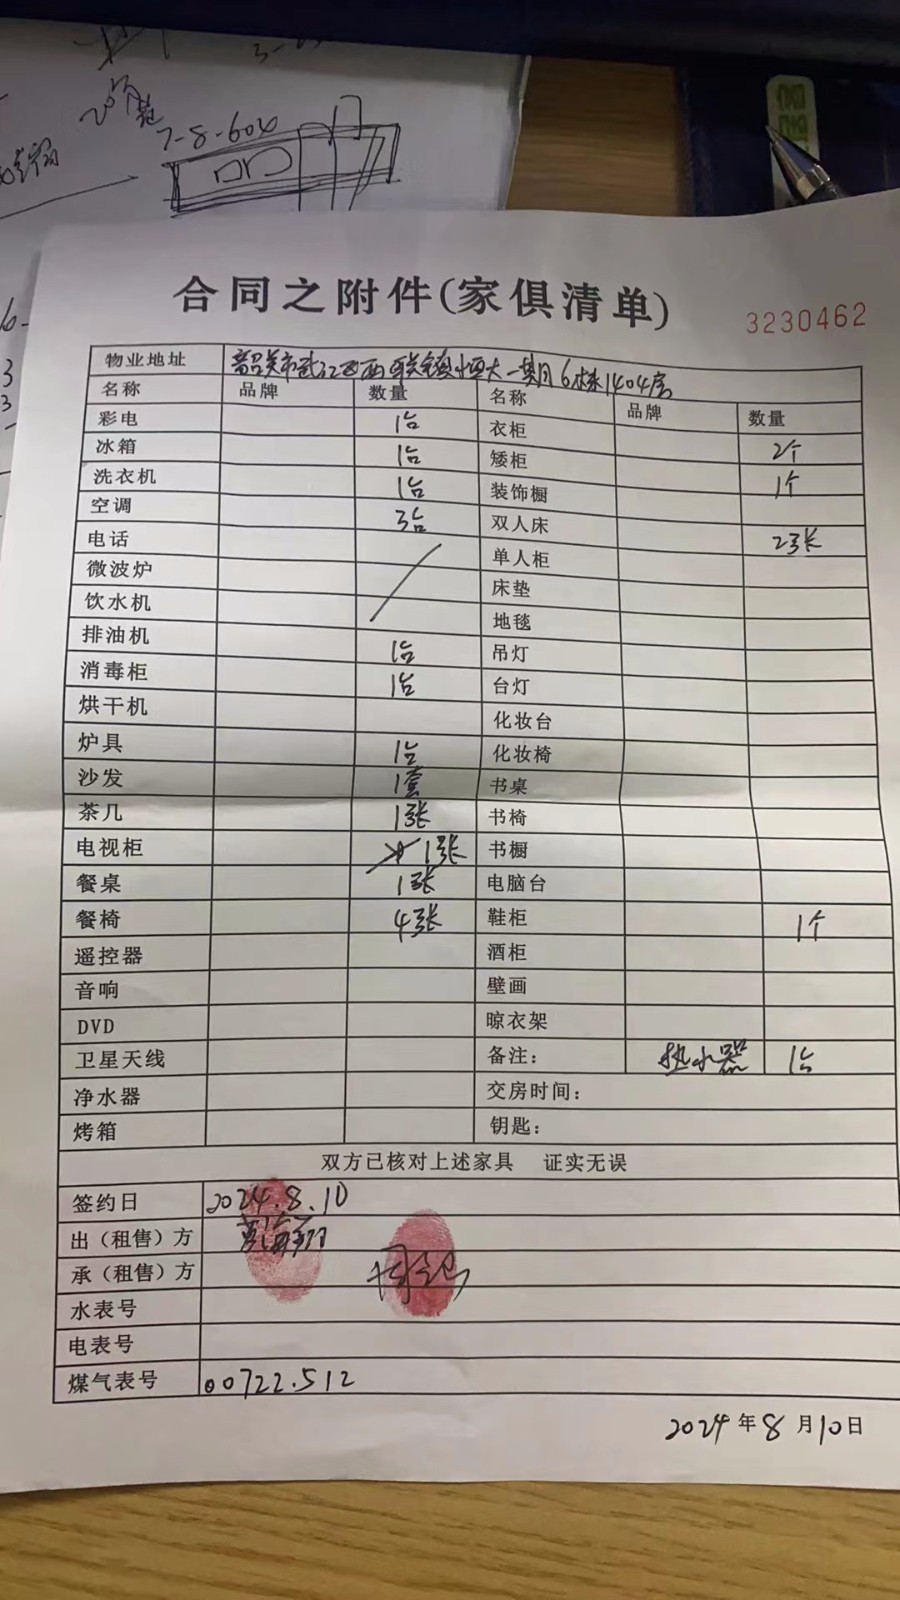 7-8-604
合同之附件(家俱清单)
3230462
物业地址 韶关市武江区西联镇恒大一期6栋1404房
名称 品牌 数量 名称 品牌 数量
彩电 1台 衣柜 2个
冰箱 1台 矮柜 1个
洗衣机 1台 装饰橱
空调 3台 双人床 2张
电话 单人柜
微波炉 床垫
饮水机 地毯
排油机 1台 吊灯
消毒柜 1台 台灯
烘干机 化妆台
炉具 1台 化妆椅
沙发 1套 书桌
茶几 1张 书椅
电视柜 1张 书橱
餐桌 1张 电脑台
餐椅 4张 鞋柜 1个
遥控器 酒柜
音响 壁画
DVD 晾衣架
卫星天线 备注: 热水器 1台
净水器 交房时间:
烤箱 钥匙:
双方已核对上述家具 证实无误
签约日 2024.8.10
出（租售）方
承（租售）方
水表号
电表号
煤气表号 00722.512
2024年8月10日